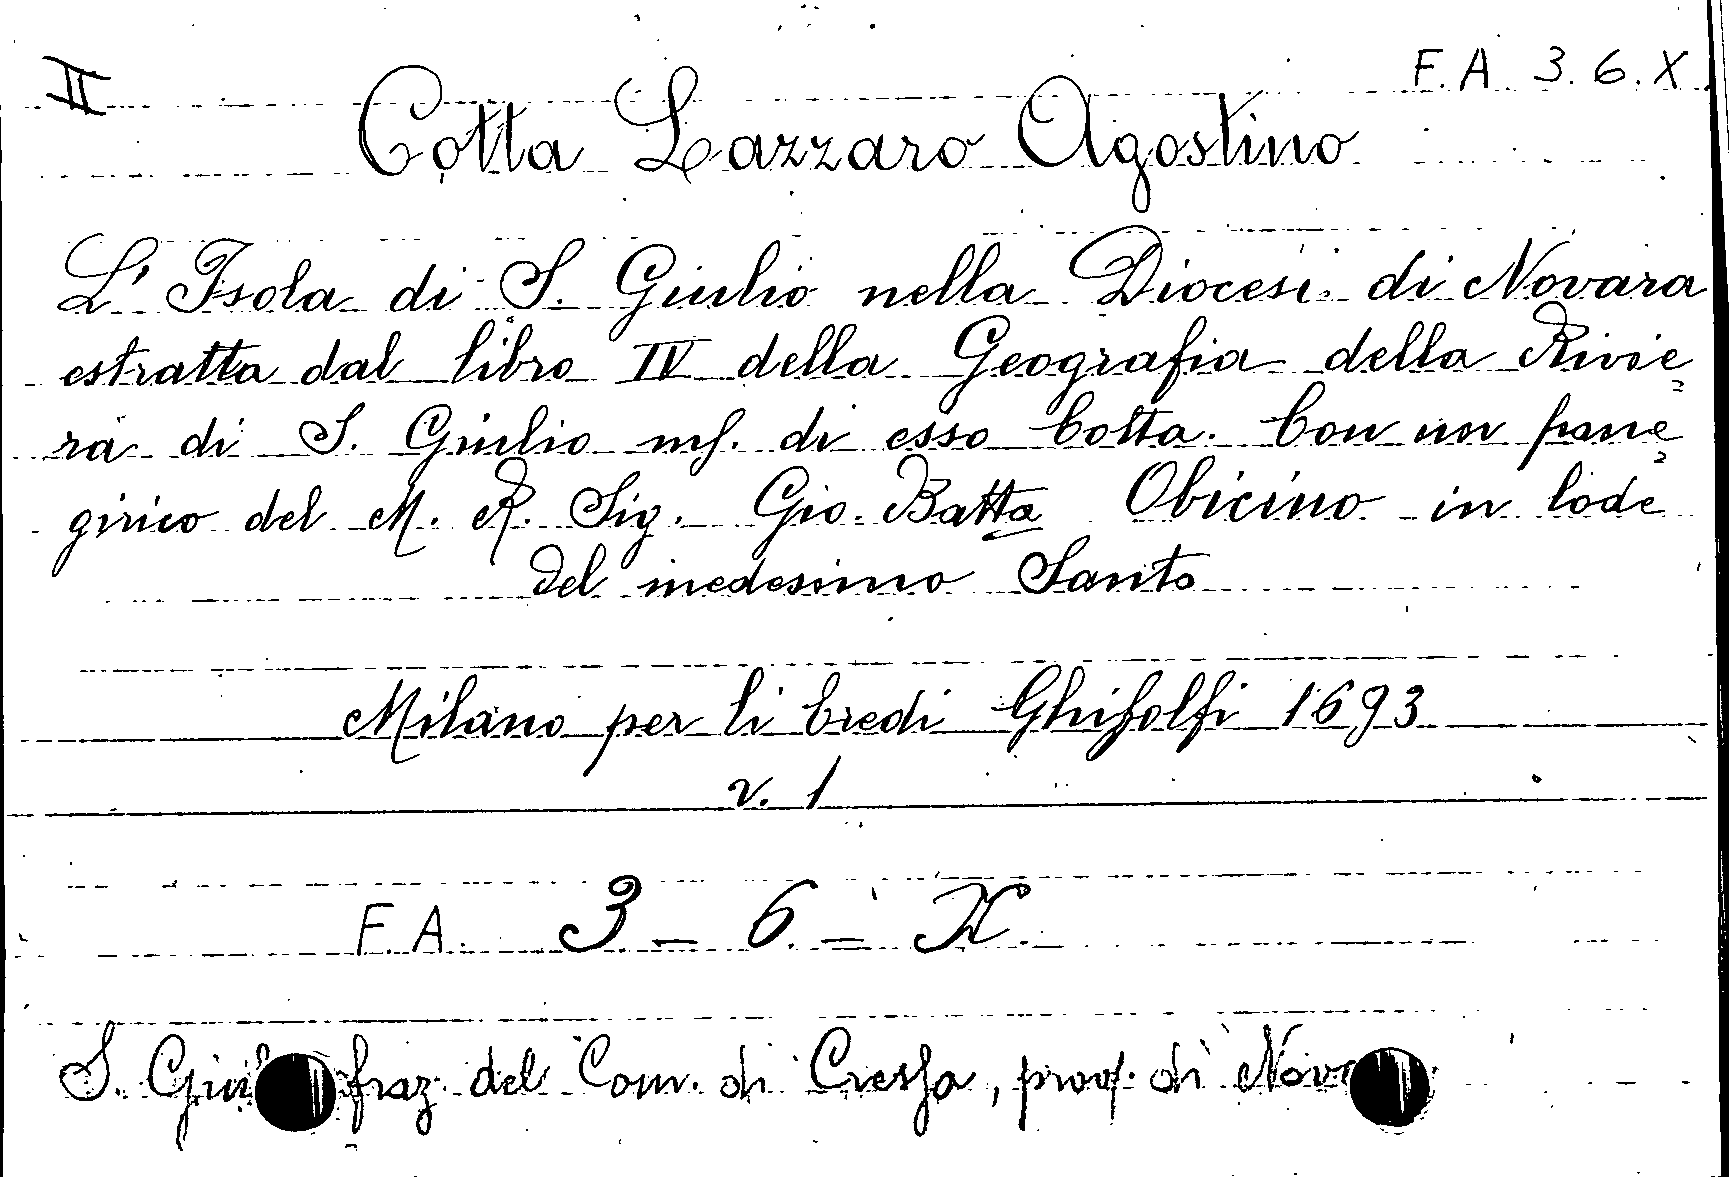 II F.A 3.6.X.
Cotta Lazzaro Agostino
L'Isola di S. Giulio nella Diocesi di Novara
estratta dal libro IV della Geografia della Rivie=
ra di S. Giulio ms. di esso Cotta. Con un pane=
girico del M. R. Sig. Gio. Batta Obicino in lode
del medesimo Santo
Milano per li Eredi Ghisolfi 1693
v. 1
F.A. 3 - 6 - X.
S. Giul fraz. del Com. di Cressa, prov. di Nov